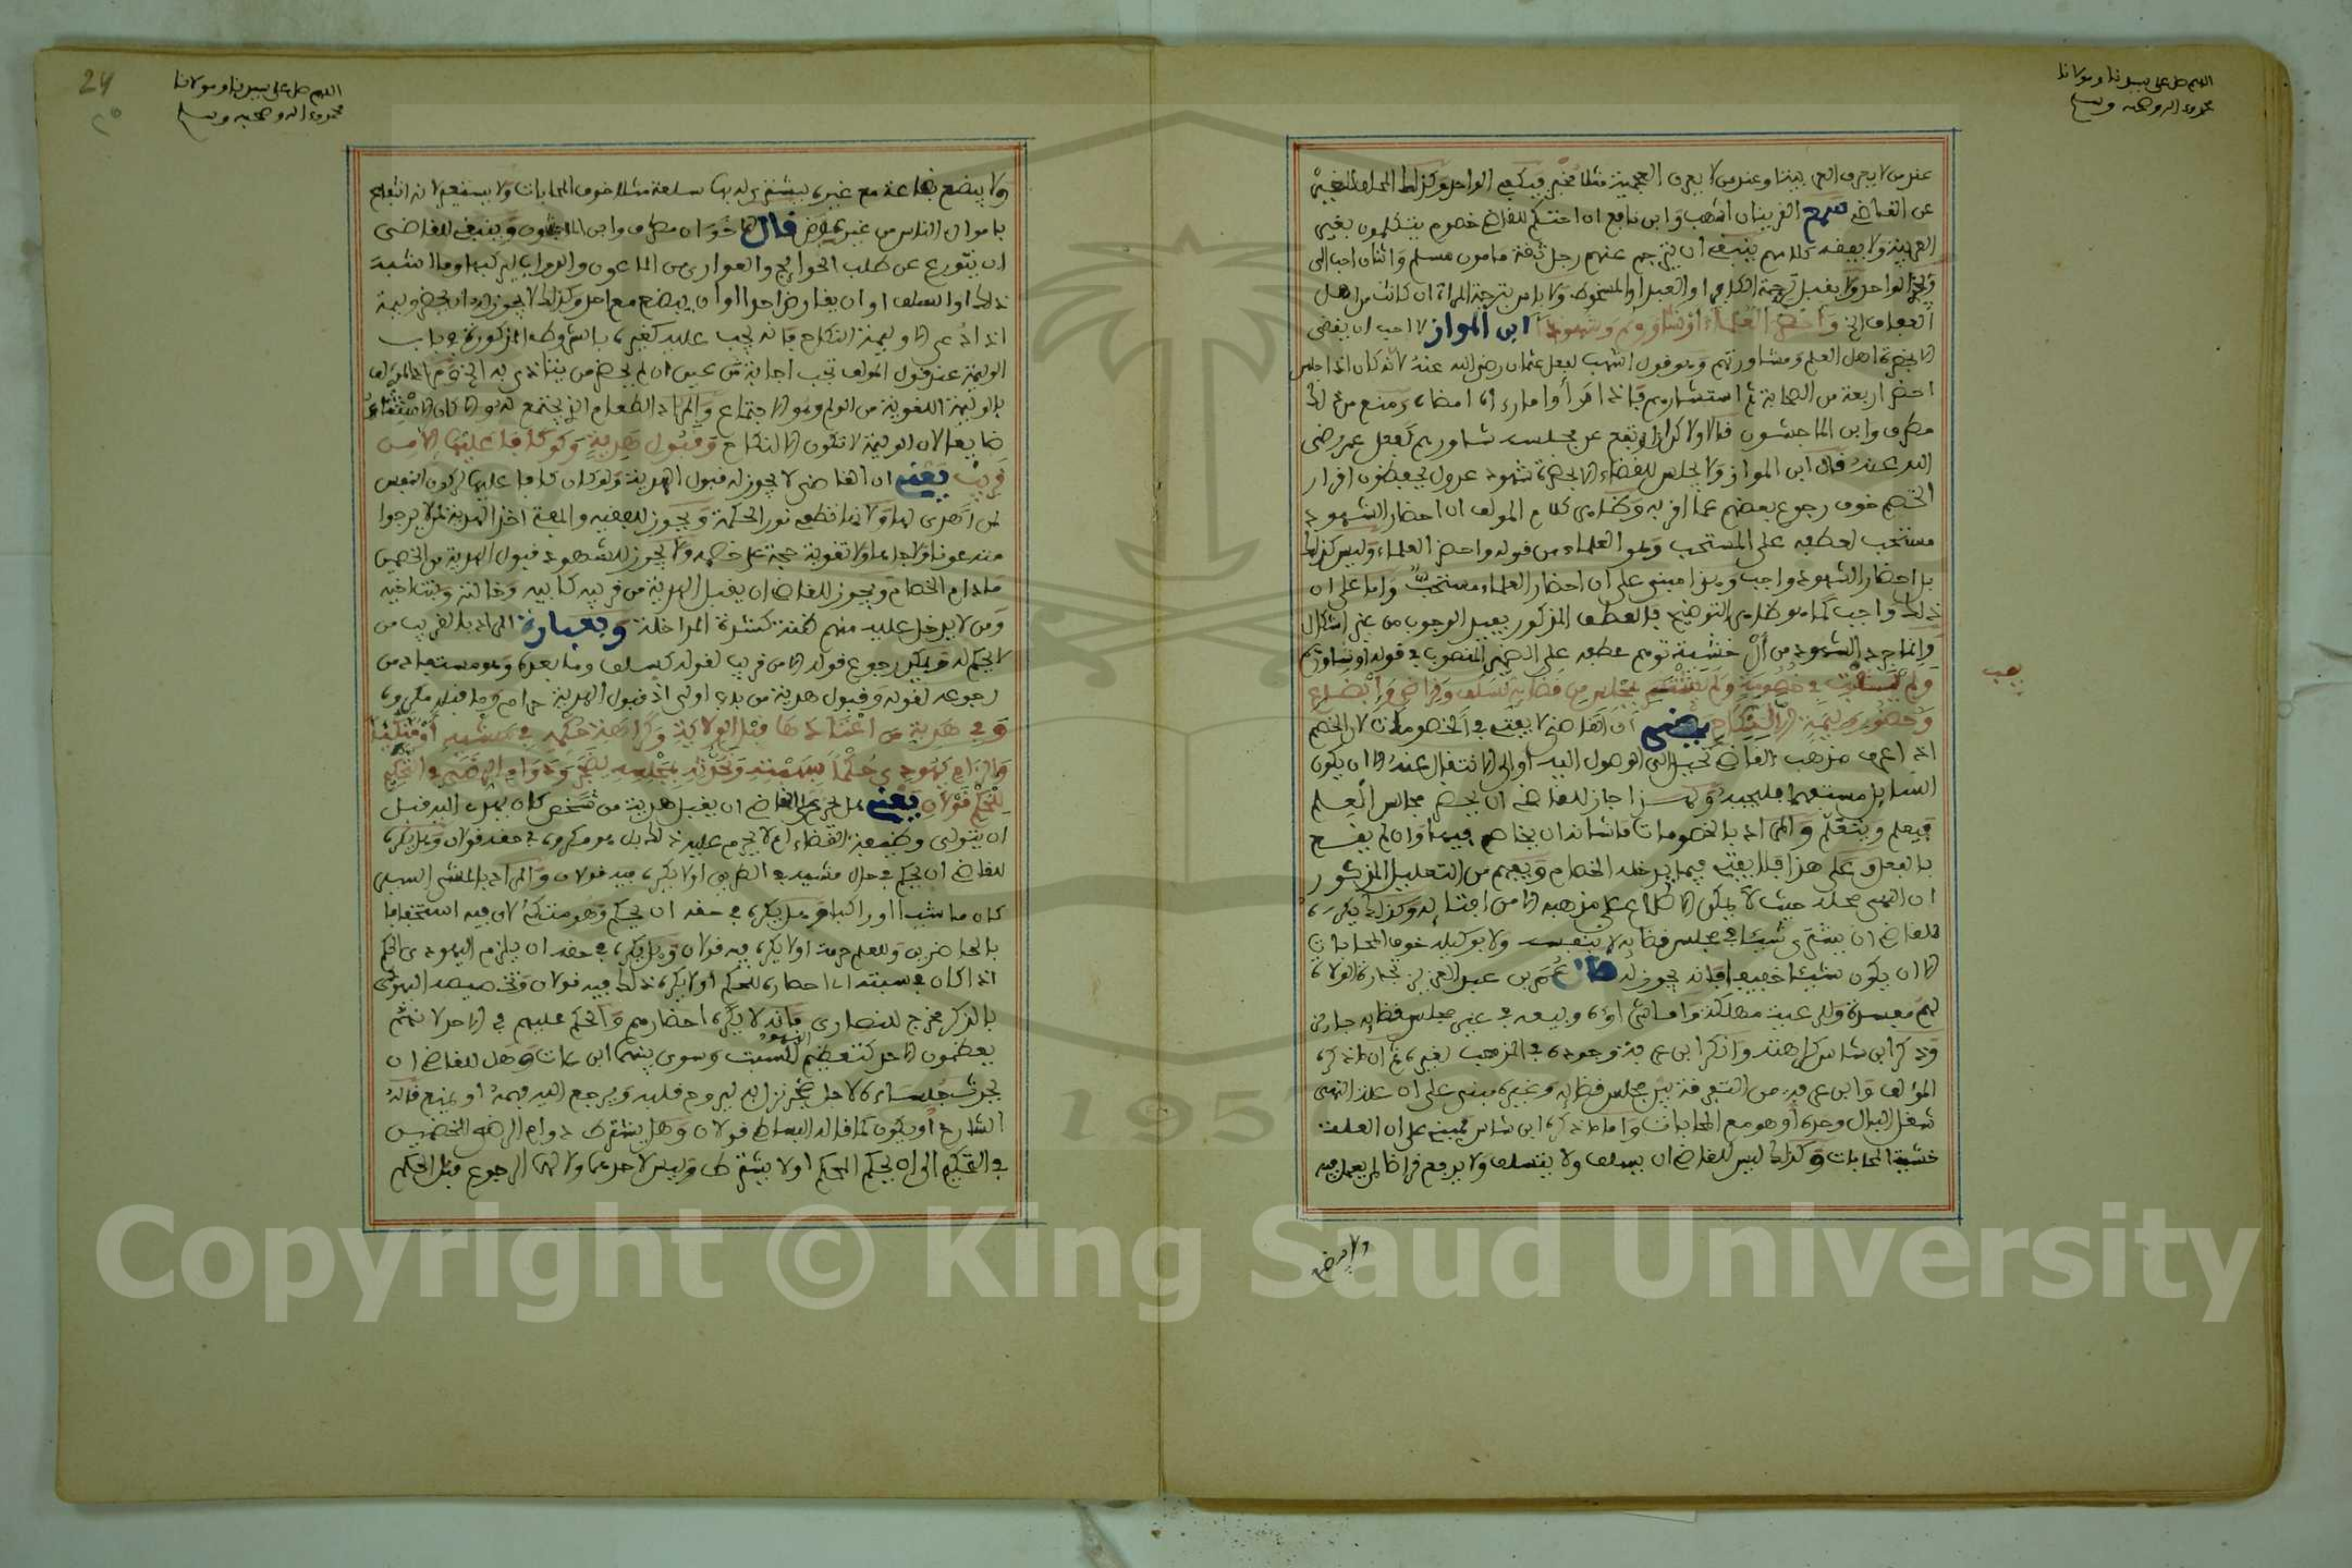 اللهم صل على سيدنا ومولانا
محمد وءاله وصحبه وسلم
عند من لا يعرف العربية وعند من لا يعرف العجمية مثلا مخبر فيكفي الواحد وكذلك المحلف المخبر
عن القاضي سمع القرينان أشهب وابن نافع ان احتكم للقاضي خصوم يتكلمون بغير
العربية ولا يفقه كلامهم ينبغي أن يترجم عنهم رجل ثقة مامون مسلم واثنان احب الي
ويجزأ الواحد ولا يقبل ترجمة الكافر او العبد او المسخوط ولا باس بترجمة المرأة ان كانت من اهل
العفاف الخ وأحضر العلماء أو شاورهم وشهودا ابن المواز لا احب ان يقضي
الا بحضرة اهل العلم ومشاورتهم وهو قول اشهب لفعل عثمان رضي الله عنه لأنه كان اذا جلس
احضر اربعة من الصحابة ثم استشارهم فإذا رأوا ما رءاه امضاه ومنع من ذلك
مطرف وابن الماجشون قالا ولاكن اذا ارتفع عن مجلسه شاورهم كفعل عمر رضي
الله عنه قال ابن المواز ولا يجلس للقضاء الا بحضرة شهود عدول يحفظون اقرار
الخصم خوف رجوع بعضهم عما اقر به وظاهر كلام المولف ان احضار الشهود
مستحب لعطفه على المستحب وهو العلماء من قوله واحضر العلماء وليس كذلك
بل احضار الشهود واجب وهذا مبني على ان احضار العلماء مستحب واما على ان
ذلك واجب كما هو ظاهر التوضيح فالعطف المذكور يفيد الوجوب من غير اشكال
وانما جرد الشهود من أل خشية توهم عطفه على الضمير المنصوب في قوله أو شاورهم
ولم يفت في خصومة ولم يشتر بمجلس قضائه كسلف وقراض وإبضاع
وحضور وليمة إلا النكاح يعني أن القاضي لا يفتي في الخصومات لان الخصم
اذا عرف مذهب القاضي تحيل الى الوصول اليه او الى الانتقال عنه الا ان يكون
السائل متفقها فليجبه وكهذا جاز للقاضي ان يحضر مجالس العلم
فيعلم ويتعلم والمراد بالخصومات ما شأنه ان يخاصم فيها وان لم يقع
بالفعل وعلى هذا فلا يفتي فيما يدخله الخصام ويفهم من التعليل المذكور
ان النهي محله حيث لا يمكن الاطلاع على مذهبه الا من افتائه وكذلك يكره
للقاضي ان يشتري شيئا في مجلس قضائه لا بنفسه ولا بوكيله خوف المحابات
الا ان يكون شيئا خفيفا فانه يجوز له قال عمر بن عبد العزيز تجارة الولاة
لهم مفسدة وللرعية مهلكة واما شراؤه وبيعه في غير مجلس قضائه جائز
وذكر ابن شاس كراهته وانكر ابن عرفة وجوده في المذهب لغيره ثم ان ما ذكره
المولف وابن عرفة من التفرقة بين مجلس قضائه وغيره مبني على ان علة النهي
شغل البال وحده او هو مع المحابات واما ما ذكره ابن شاس فمبني على ان العلة
خشية المحابات وكذلك ليس للقاضي ان يسلف ولا يتسلف ولا يدفع قراضا لمن يعمل فيه
ولا يبضع
اللهم صل على سيدنا ومولانا
محمد وءاله وصحبه وسلم
24
ولا يبضع بضاعة مع غيره ليشتري له بها سلعة مثلا خوف المحابات ولا بيننعه لانه انتفاع
باموال الناس من غير عوض قال الاخوان مطرف وابن الماجشون وينبغي للقاضي
ان يتورع عن طلب الحوائج والعواري من الماعون والدواب ليركبها وما اشبه
ذلك او السلف او ان يقارض احدا او ان يبضع مع احد وكذلك لا يجوز له ان يحضر وليمة
اذا دعي الا وليمة النكاح فانه يجب عليه كغيره بالشروط المذكورة في باب
الوليمة عند قول المولف تجب اجابة من عين ان لم يحضر من يتاذى به الخ
بالوليمة اللغوية من الولم وهو الاجتماع والمراد الطعام الذي يجتمع له والا كان الاستثناء
ضايعا لان الوليمة لا تكون الا لنكاح وقبول هدية ولو كافأ عليها إلا من
قريب يعني ان القاضي لا يجوز له قبول الهدية ولو كان كافا عليها لركون النفس
لمن اهدى لها ولانها تطفي نور الحكمة ويجوز للفقيه والمفتي اخذ الهدية ممن لا يرجوا
منه عونا ولا جاها ولا تقوية حجة على خصمه ولا يجوز للشهود قبول الهدية من الخصمين
مادام الخصام ويجوز للقاضي ان يقبل الهدية من قريبه كابيه وخالته وبنت اخيه
ومن لا يدخل عليه منهم ظنة لشدة المداخلة وبعبارة المراد بالقريب من
لا يحكم له ويمكن رجوع قوله الا من قريب لقوله كسلف وما بعده وهو مستفاد من
رجوعه لقوله وقبول هدية من باب اولى اذ قبول الهدية حرام وما قبله مكروه
وفي هدية من اعتادها قبل الولاية وكراهة حكمه في مشيه أو متكئا
وإلزام يهودي حكما بسبته وتحدثه بمجلسه لضجر ودوام الرضى في التحكيم
للحكم قولان يعني هل يحرم على القاضي ان يقبل هدية من شخص كان يهدي اليه قبل
ان يتولى وظيفة القضاء او لا يحرم عليه ذلك بل هو مكروه في حقه قولان وهل يكره
للقاضي ان يحكم في حال مشيه في الطريق او لا يكره فيه قولان والمراد بالمشي السير
كان ماشيا او راكبا وهل يكره في حقه ان يحكم وهو متكئ لان فيه استخفافا
بالحاضرين وللعلم حرمة او لا يكره فيه قولان وهل يكره في حقه ان يلزم اليهودي الحكم
اذا كان في سبته اي احضاره للحكم او لا يكره ذلك فيه قولان وتخصيصه اليهودي
بالذكر مخرج للنصارى فإنه لا يكره احضارهم والحكم عليهم في الاحد لانهم لا
يعظمون الاحد كتعظيم اليهود السبت وسوى بينهما ابن عات وهل للقاضي ان
يحدث جلساءه لاجل ضجر نزل به ليروح قلبه ويرجع اليه فهمه او يمنع قاله
الشارح او يكون كما قاله البساطي قولان وهل يشترط دوام الرضى الخصمين
في التحكيم الى ان يحكم المحكم او لا يشترط وليس لاحدهما ولا لهما الرجوع قبل الحكم
Copyright © King Saud University
1957